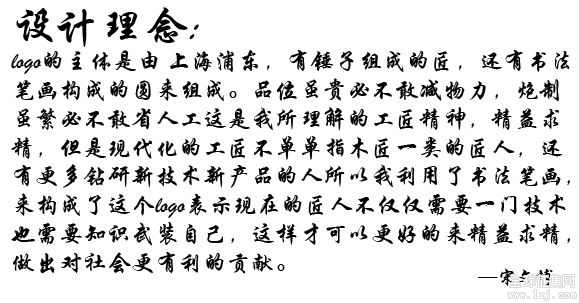 设计理念：
logo的主体是由 上海浦东，有锤子组成的匠，还有书法
笔画构成的圆来组成。品位虽贵必不敢减物力，炮制
虽繁必不敢省人工这是我所理解的工匠精神，精益求
精，但是现代化的工匠不单单指木匠一类的匠人，还
有更多钻研新技术新产品的人所以我利用了书法笔画，
来构成了这个logo表示现在的匠人不仅仅需要一门技术
也需要知识武装自己，这样才可以更好的来精益求精，
做出对社会更有利的贡献。
全球征集网
—宋
www.1zj.com